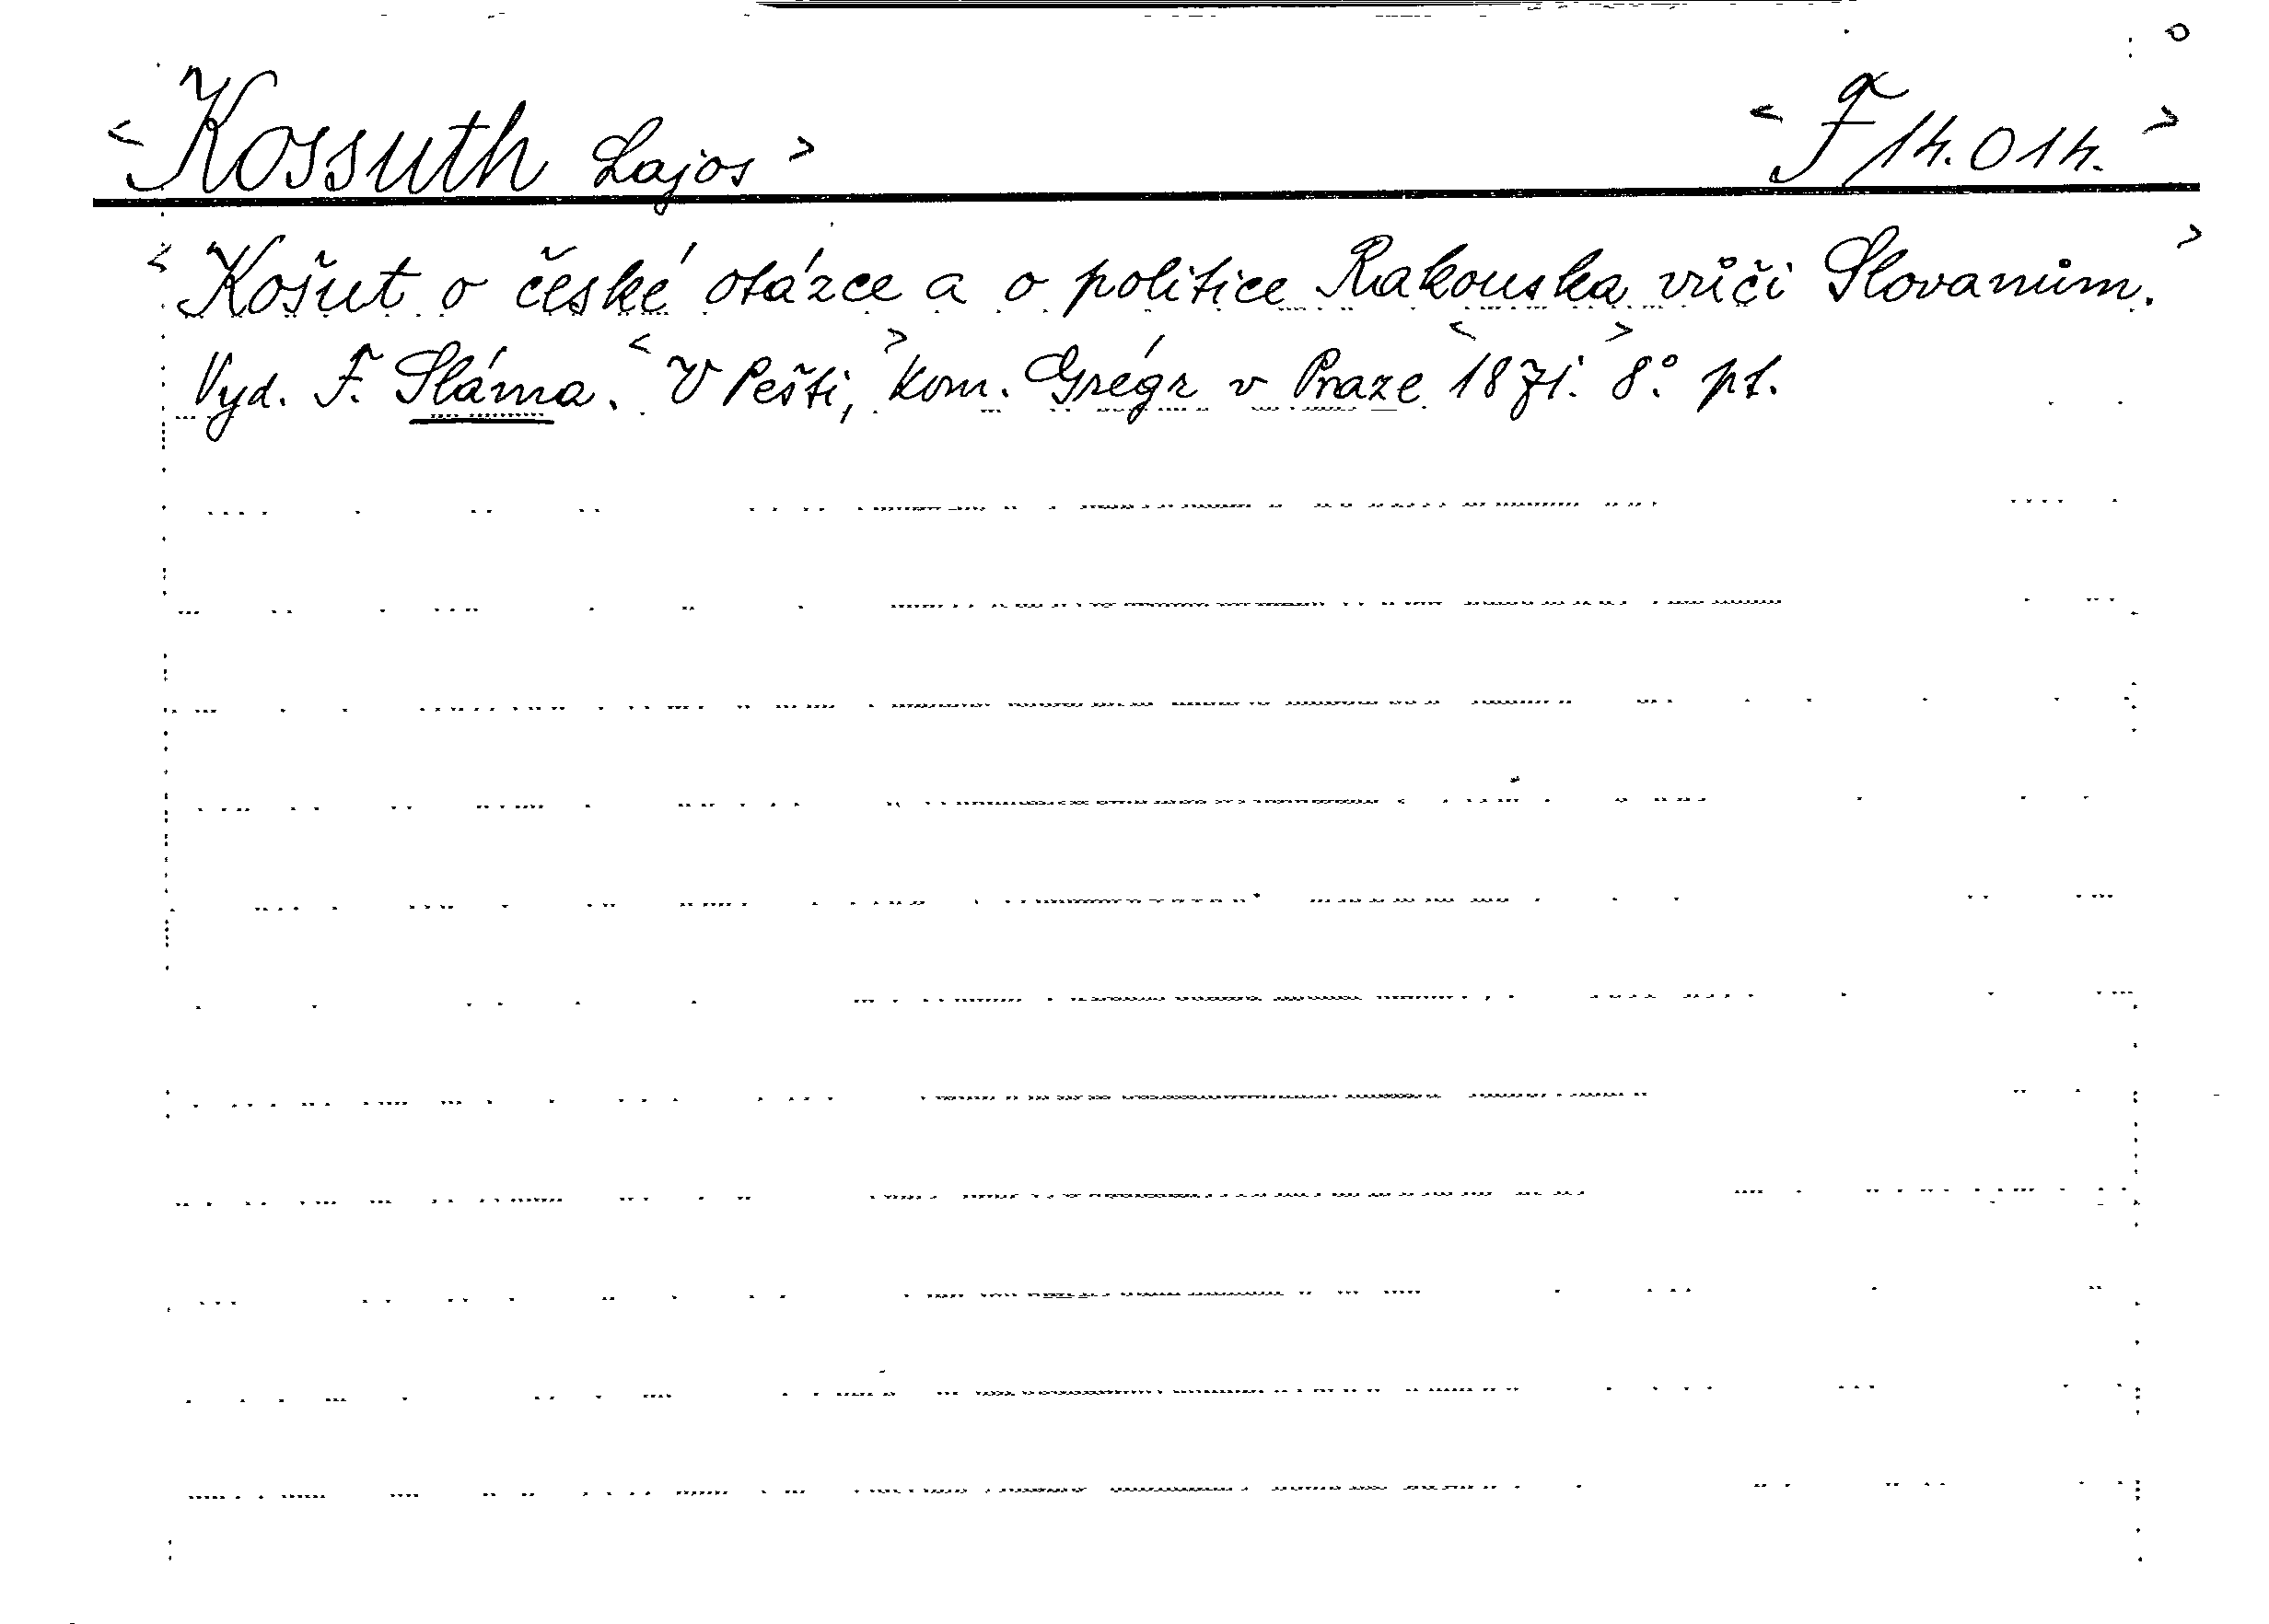 <Kossuth Lajos> <F 14.014.>
<Košut o české otázce a o politice Rakouska vůči Slovanům.>
Vyd. F. Sláma. <V Pešti,> kom. Grégr v Praze <1871.> 8° pt.